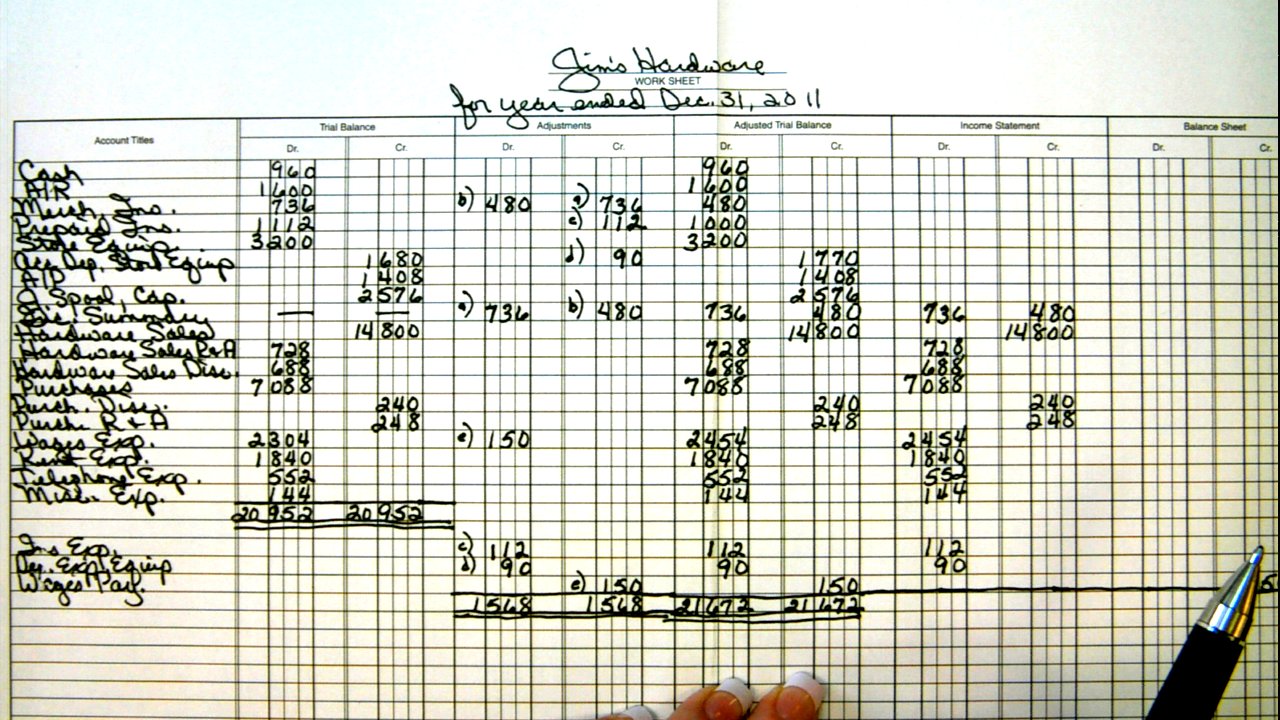 Jim's Hardware
WORK SHEET
for year ended Dec. 31, 2011
Account Titles Trial Balance Adjustments Adjusted Trial Balance Income Statement Balance Sheet
Dr. Cr. Dr. Cr. Dr. Cr. Dr. Cr. Dr. Cr.
Cash 960 960
A/R 1600 1600
Merch. Ins. 736 b) 480 a) 736 480
Prepaid Ins. 1112 c) 112 1000
Store Equip. 3200 3200
Acc. Dep. Store Equip 1680 d) 90 1770
A/P 1408 1408
J. Spool, Cap. 2576 2576
Inc. Summary — — a) 736 b) 480 736 480 736 480
Hardware Sales 14800 14800 14800
Hardware Sales R+A 728 728 728
Hardware Sales Disc. 688 688 688
Purchases 7088 7088 7088
Purch. Disc. 240 240 240
Purch. R+A 248 248 248
Wages Exp. 2304 e) 150 2454 2454
Rent Exp. 1840 1840 1840
Telephone Exp. 552 552 552
Misc. Exp. 144 144 144
20952 20952
Ins Exp. c) 112 112 112
Dep. Exp. Equip d) 90 90 90
Wages Pay. e) 150 150
1568 1568 21672 21672